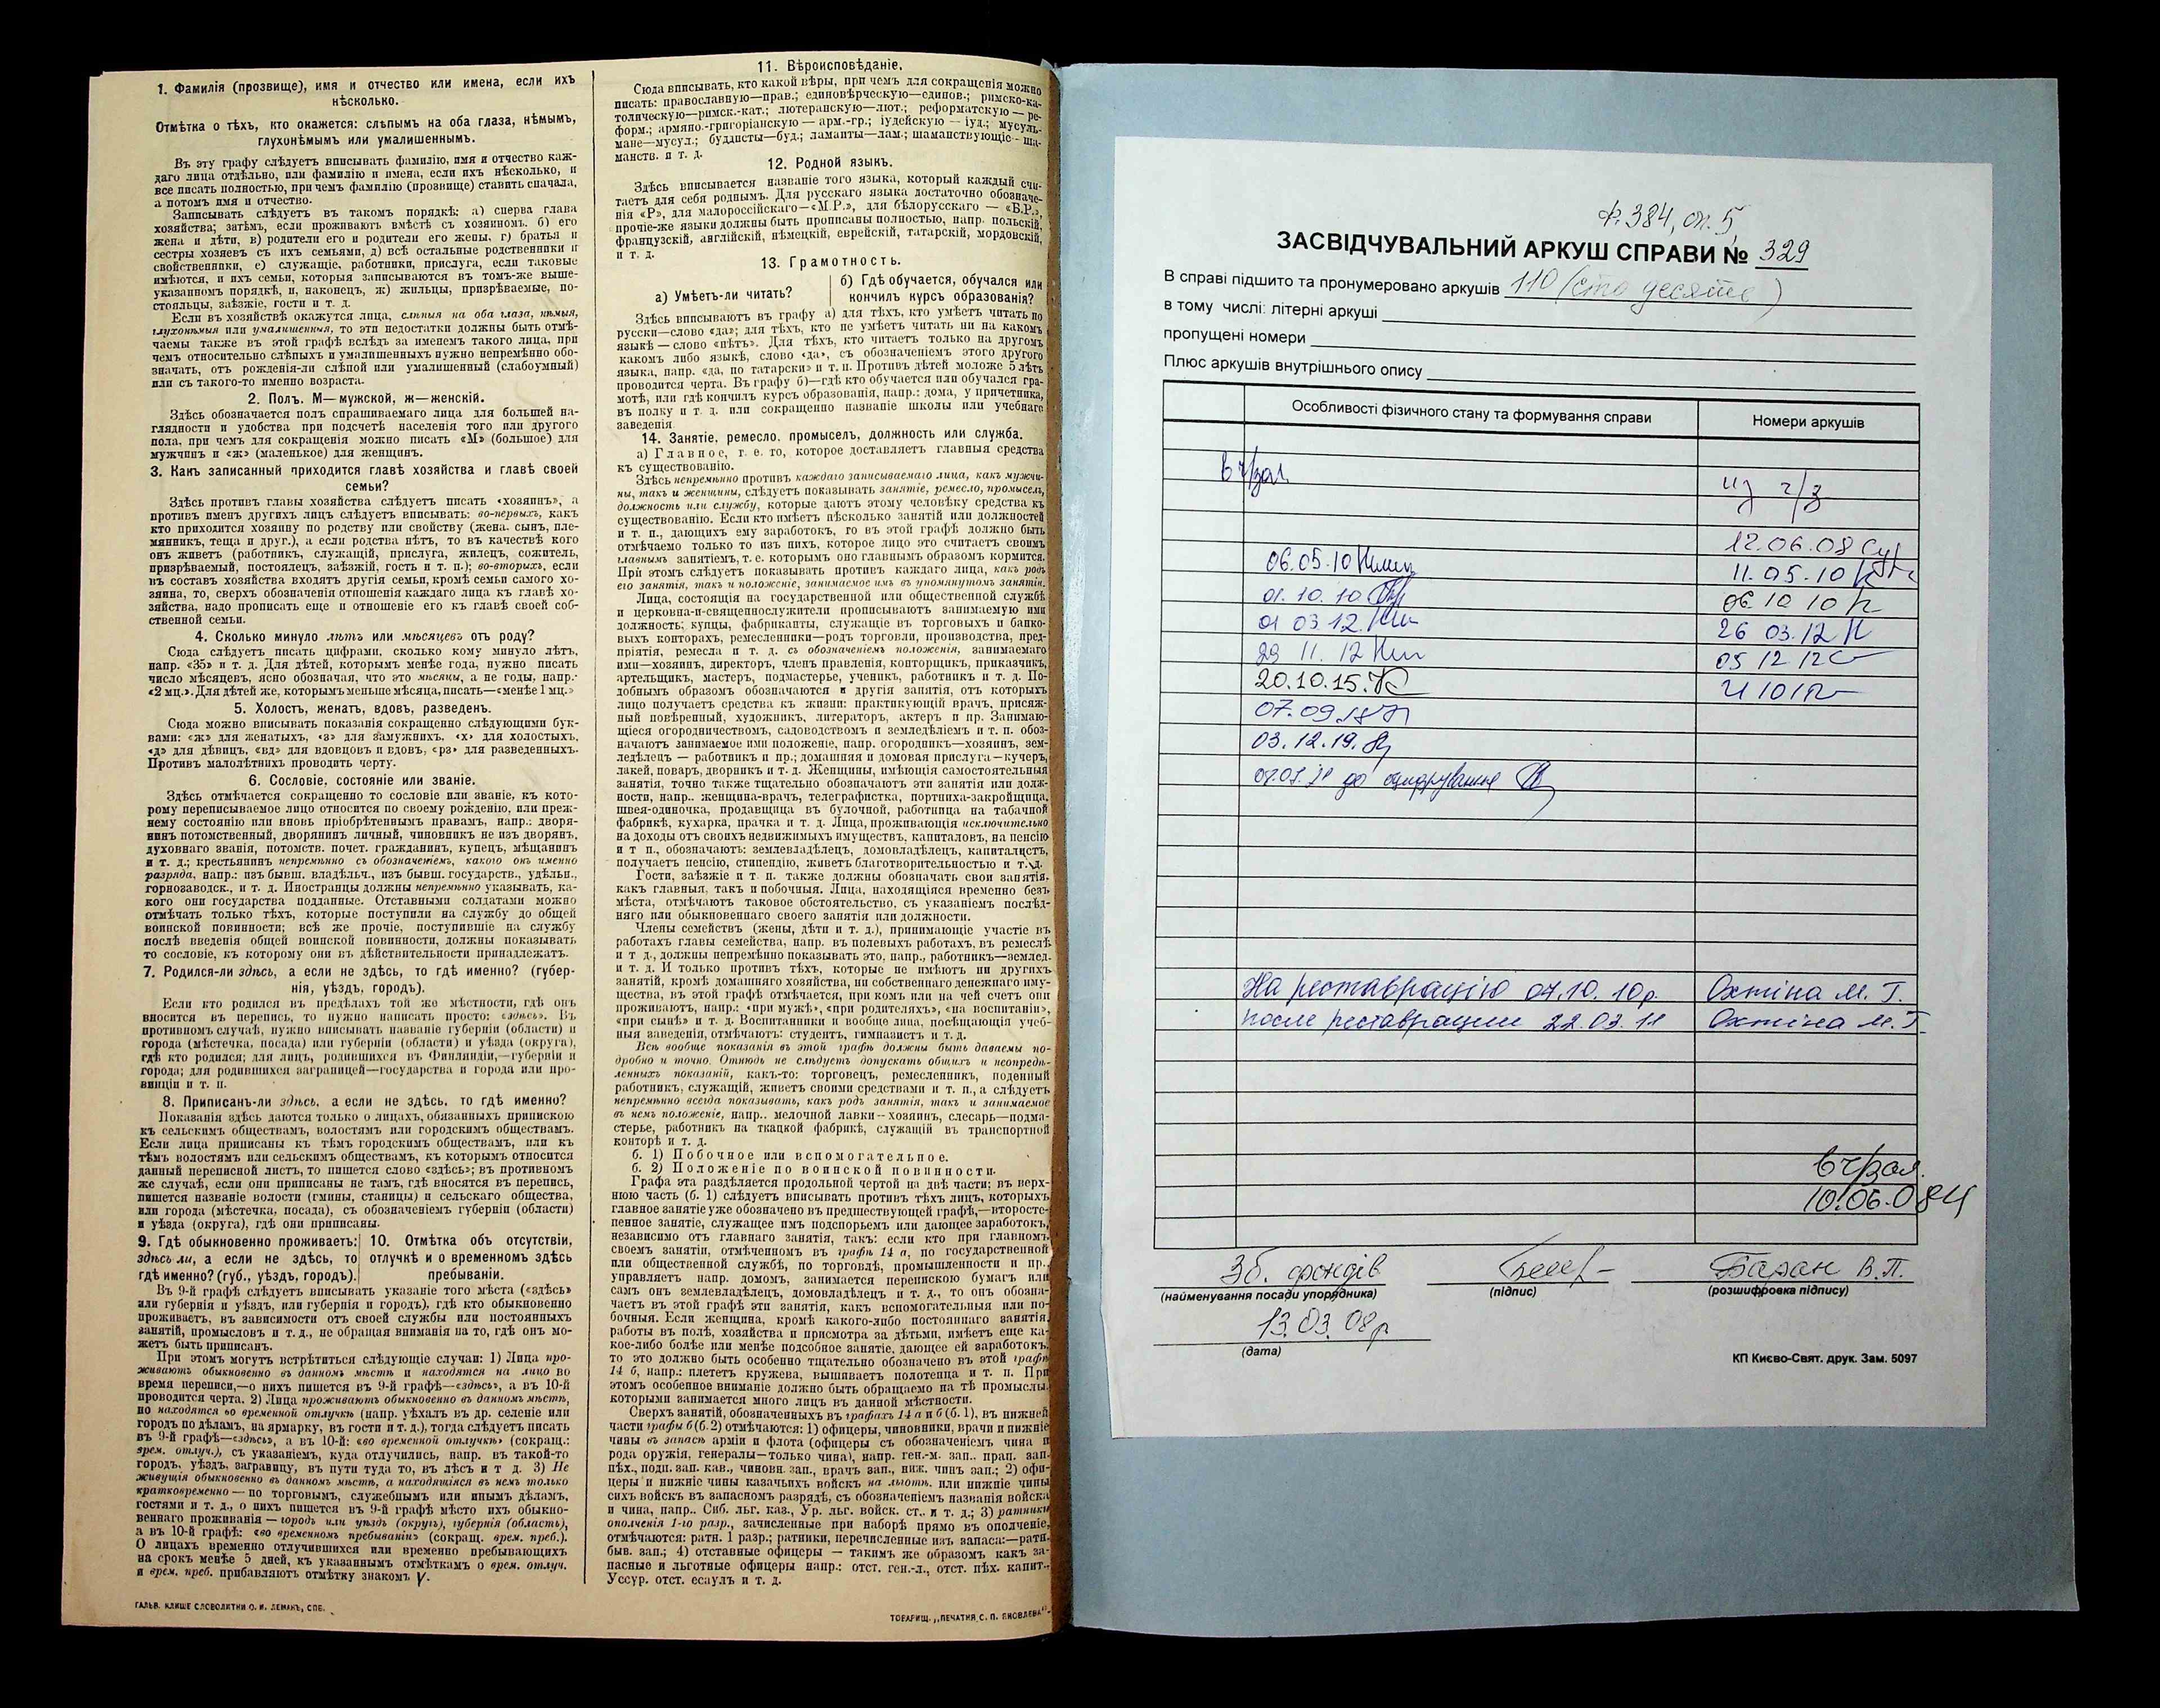 1. Фамилія (прозвище), имя и отчество или имена, если ихъ
нѣсколько.
Отмѣтка о тѣхъ, кто окажется: слѣпымъ на оба глаза, нѣмымъ,
глухонѣмымъ или умалишеннымъ.
Въ эту графу слѣдуетъ вписывать фамилію, имя и отчество каж-
даго лица отдѣльно, или фамилію и имена, если ихъ нѣсколько, и
все писать полностью, при чемъ фамилію (прозвище) ставить сначала,
а потомъ имя и отчество.
Записывать слѣдуетъ въ такомъ порядкѣ: а) сперва глава
хозяйства; затѣмъ, если проживаютъ вмѣстѣ съ хозяиномъ. б) его
жена и дѣти, в) родители его и родители его жены, г) братья и
сестры хозяевъ съ ихъ семьями, д) всѣ остальные родственники и
свойственники, е) служащіе, работники, прислуга, если таковые
имѣются, и ихъ семьи, которыя записываются въ томъ-же выше-
указанномъ порядкѣ, и, наконецъ, ж) жильцы, призрѣваемые, по-
стояльцы, заѣзжіе, гости и т. д.
Если въ хозяйствѣ окажутся лица, слѣпыя на оба глаза, нѣмыя,
глухонѣмыя или умалишенныя, то эти недостатки должны быть отмѣ-
чаемы также въ этой графѣ вслѣдъ за именемъ такого лица, при
чемъ относительно слѣпыхъ и умалишенныхъ нужно непремѣнно обо-
значать, отъ рожденія-ли слѣпой или умалишенный (слабоумный)
или съ такого-то именно возраста.
2. Полъ. М—мужской, ж—женскій.
Здѣсь обозначается полъ спрашиваемаго лица для большей на-
глядности и удобства при подсчетѣ населенія того или другого
пола, при чемъ для сокращенія можно писать «М» (большое) для
мужчинъ и «ж» (маленькое) для женщинъ.
3. Какъ записанный приходится главѣ хозяйства и главѣ своей
семьи?
Здѣсь противъ главы хозяйства слѣдуетъ писать «хозяинъ», а
противъ именъ другихъ лицъ слѣдуетъ вписывать: во-первыхъ, какъ
кто приходится хозяину по родству или свойству (жена, сынъ, пле-
мянникъ, теща и друг.), а если родства нѣтъ, то въ качествѣ кого
онъ живетъ (работникъ, служащій, прислуга, жилецъ, сожитель,
призрѣваемый, постоялецъ, заѣзжій, гость и т. п.); во-вторыхъ, если
въ составъ хозяйства входятъ другія семьи, кромѣ семьи самого хо-
зяина, то, сверхъ обозначенія отношенія каждаго лица къ главѣ хо-
зяйства, надо прописать еще и отношеніе его къ главѣ своей соб-
ственной семьи.
4. Сколько минуло лѣтъ или мѣсяцевъ отъ роду?
Сюда слѣдуетъ писать цифрами, сколько кому минуло лѣтъ,
напр. «35» и т. д. Для дѣтей, которымъ менѣе года, нужно писать
число мѣсяцевъ, ясно обозначая, что это мѣсяцы, а не годы, напр.·
«2 мц.». Для дѣтей же, которымъ меньше мѣсяца, писать—«менѣе 1 мц.»
5. Холостъ, женатъ, вдовъ, разведенъ.
Сюда можно вписывать показанія сокращенно слѣдующими бук-
вами: «ж» для женатыхъ, «з» для замужнихъ, «х» для холостыхъ,
«д» для дѣвицъ, «вд» для вдовцовъ и вдовъ, «рз» для разведенныхъ.
Противъ малолѣтнихъ проводить черту.
6. Сословіе, состояніе или званіе.
Здѣсь отмѣчается сокращенно то сословіе или званіе, къ кото-
рому переписываемое лицо относится по своему рожденію, или преж-
нему состоянію или вновь пріобрѣтеннымъ правамъ, напр.: дворя-
нинъ потомственный, дворянинъ личный, чиновникъ не изъ дворянъ,
духовнаго званія, потомств. почет. гражданинъ, купецъ, мѣщанинъ
и т. д.; крестьянинъ непремѣнно съ обозначеніемъ, какого онъ именно
разряда, напр.: изъ бывш. владѣльч., изъ бывш. государств., удѣльн.,
горнозаводск., и т. д. Иностранцы должны непремѣнно указывать, ка-
кого они государства подданные. Отставными солдатами можно
отмѣчать только тѣхъ, которые поступили на службу до общей
воинской повинности; всѣ же прочіе, поступившіе на службу
послѣ введенія общей воинской повинности, должны показывать
то сословіе, къ которому они въ дѣйствительности принадлежатъ.
7. Родился-ли здѣсь, а если не здѣсь, то гдѣ именно? (губер-
нія, уѣздъ, городъ).
Если кто родился въ предѣлахъ той же мѣстности, гдѣ онъ
вносится въ перепись, то нужно написать просто: «здѣсь». Въ
противномъ случаѣ, нужно вписывать названіе губерніи (области) и
города (мѣстечка, посада) или губерніи (области) и уѣзда (округа),
гдѣ кто родился; для лицъ, родившихся въ Финляндіи,—губерніи и
города; для родившихся заграницей—государства и города или про-
винціи и т. п.
8. Приписанъ-ли здѣсь, а если не здѣсь, то гдѣ именно?
Показанія здѣсь даются только о лицахъ, обязанныхъ припискою
къ сельскимъ обществамъ, волостямъ или городскимъ обществамъ.
Если лица приписаны къ тѣмъ городскимъ обществамъ, или къ
тѣмъ волостямъ или сельскимъ обществамъ, къ которымъ относится
данный переписной листъ, то пишется слово «здѣсь»; въ противномъ
же случаѣ, если они приписаны не тамъ, гдѣ вносятся въ перепись,
пишется названіе волости (гмины, станицы) и сельскаго общества,
или города (мѣстечка, посада), съ обозначеніемъ губерніи (области)
и уѣзда (округа), гдѣ они приписаны.
9. Гдѣ обыкновенно проживаетъ:
здѣсь ли, а если не здѣсь, то
гдѣ именно? (губ., уѣздъ, городъ).
10. Отмѣтка объ отсутствіи,
отлучкѣ и о временномъ здѣсь
пребываніи.
Въ 9-й графѣ слѣдуетъ вписывать указаніе того мѣста («здѣсь»
или губернія и уѣздъ, или губернія и городъ), гдѣ кто обыкновенно
проживаетъ, въ зависимости отъ своей службы или постоянныхъ
занятій, промысловъ и т. д., не обращая вниманія на то, гдѣ онъ мо-
жетъ быть приписанъ.
При этомъ могутъ встрѣтиться слѣдующіе случаи: 1) Лица про-
живаютъ обыкновенно въ данномъ мѣстѣ и находятся на лицо во
время переписи,—о нихъ пишется въ 9-й графѣ—«здѣсь», а въ 10-й
проводится черта. 2) Лица проживаютъ обыкновенно въ данномъ мѣстѣ,
но находятся во временной отлучкѣ (напр. уѣхалъ въ др. селеніе или
городъ по дѣламъ, на ярмарку, въ гости и т. д.), тогда слѣдуетъ писать
въ 9-й графѣ—«здѣсь», а въ 10-й: «во временной отлучкѣ» (сокращ.:
врем. отлуч.), съ указаніемъ, куда отлучились, напр. въ такой-то
городъ, уѣздъ, заграницу, въ пути туда то, въ лѣсъ и т д. 3) Не
живущія обыкновенно въ данномъ мѣстѣ, а находящіяся въ немъ только
кратковременно — по торговымъ, служебнымъ или инымъ дѣламъ,
гостями и т. д., о нихъ пишется въ 9-й графѣ мѣсто ихъ обыкно-
веннаго проживанія — городъ или уѣздъ (округъ), губернія (область),
а въ 10-й графѣ: «во временномъ пребываніи» (сокращ. врем. преб.).
О лицахъ временно отлучившихся или временно пребывающихъ
на срокъ менѣе 5 дней, къ указаннымъ отмѣткамъ о врем. отлуч.
и врем. преб. прибавляютъ отмѣтку знакомъ V.
ГАЛЬВ. КЛИШЕ СЛОВОЛИТНИ О. И. ЛЕМАНЪ, СПБ.
11. Вѣроисповѣданіе.
Сюда вписывать, кто какой вѣры, при чемъ для сокращенія можно
писать: православную—прав.; единовѣрческую—единов.; римско-ка-
толическую—римск.-кат.; лютеранскую—лют.; реформатскую — ре-
форм.; армяно-григоріанскую — арм.-гр.; іудейскую — іуд.; мусуль-
мане—мусул.; буддисты—буд.; ламаиты—лам.; шаманствующіе— ша-
манств. и т. д.
12. Родной языкъ.
Здѣсь вписывается названіе того языка, который каждый счи-
таетъ для себя роднымъ. Для русскаго языка достаточно обозначе-
нія «Р», для малороссійскаго—«М.Р.», для бѣлорусскаго — «Б.Р.»,
прочіе-же языки должны быть прописаны полностью, напр. польскій,
французскій, англійскій, нѣмецкій, еврейскій, татарскій, мордовскій,
и т. д.
13. Грамотность.
а) Умѣетъ-ли читать?
б) Гдѣ обучается, обучался или
кончилъ курсъ образованія?
Здѣсь вписываютъ въ графу а) для тѣхъ, кто умѣетъ читать по
русски—слово «да»; для тѣхъ, кто не умѣетъ читать ни на какомъ
языкѣ — слово «нѣтъ». Для тѣхъ, кто читаетъ только на другомъ
какомъ либо языкѣ, слово «да», съ обозначеніемъ этого другого
языка, напр. «да, по татарски» и т. п. Противъ дѣтей моложе 5 лѣтъ
проводится черта. Въ графу б)—гдѣ кто обучается или обучался гра-
мотѣ, или гдѣ кончилъ курсъ образованія, напр.: дома, у причетника,
въ полку и т. д. или сокращенно названіе школы или учебнаго
заведенія
14. Занятіе, ремесло, промыселъ, должность или служба.
а) Главное, т. е. то, которое доставляетъ главныя средства
къ существованію.
Здѣсь непремѣнно противъ каждаго записываемаго лица, какъ мужчи-
ны, такъ и женщины, слѣдуетъ показывать занятіе, ремесло, промыселъ,
должность или службу, которые даютъ этому человѣку средства къ
существованію. Если кто имѣетъ нѣсколько занятій или должностей
и т. п., дающихъ ему заработокъ, то въ этой графѣ должно быть
отмѣчаемо только то изъ нихъ, которое лицо это считаетъ своимъ
главнымъ занятіемъ, т. е. которымъ оно главнымъ образомъ кормится.
При этомъ слѣдуетъ показывать противъ каждаго лица, какъ родъ
его занятія, такъ и положеніе, занимаемое имъ въ упомянутомъ занятіи.
Лица, состоящія на государственной или общественной службѣ
и церковно-и-священнослужители прописываютъ занимаемую ими
должность; купцы, фабриканты, служащіе въ торговыхъ и банко-
выхъ конторахъ, ремесленники—родъ торговли, производства, пред-
пріятія, ремесла и т. д. съ обозначеніемъ положенія, занимаемаго
ими—хозяинъ, директоръ, членъ правленія, конторщикъ, приказчикъ,
артельщикъ, мастеръ, подмастерье, ученикъ, работникъ и т. д. По-
добнымъ образомъ обозначаются и другія занятія, отъ которыхъ
лицо получаетъ средства къ жизни: практикующій врачъ, присяж-
ный повѣренный, художникъ, литераторъ, актеръ и пр. Занимаю-
щіеся огородничествомъ, садоводствомъ и земледѣліемъ и т. п. обоз-
начаютъ занимаемое ими положеніе, напр. огородникъ—хозяинъ, зем-
ледѣлецъ — работникъ и пр.; домашняя и домовая прислуга—кучеръ,
лакей, поваръ, дворникъ и т. д. Женщины, имѣющія самостоятельныя
занятія, точно также тщательно обозначаютъ эти занятія или долж-
ности, напр.. женщина-врачъ, телеграфистка, портниха-закройщица,
швея-одиночка, продавщица въ булочной, работница на табачной
фабрикѣ, кухарка, прачка и т. д. Лица, проживающія исключительно
на доходы отъ своихъ недвижимыхъ имуществъ, капиталовъ, на пенсію
и т п., обозначаютъ: землевладѣлецъ, домовладѣлецъ, капиталистъ,
получаетъ пенсію, стипендію, живетъ благотворительностью и т. д.
Гости, заѣзжіе и т. п. также должны обозначать свои занятія,
какъ главныя, такъ и побочныя. Лица, находящіяся временно безъ
мѣста, отмѣчаютъ таковое обстоятельство, съ указаніемъ послѣд-
няго или обыкновеннаго своего занятія или должности.
Члены семействъ (жены, дѣти и т. д.), принимающіе участіе въ
работахъ главы семейства, напр. въ полевыхъ работахъ, въ ремеслѣ
и т д., должны непремѣнно показывать это, напр., работникъ—землед.
и т. д. И только противъ тѣхъ, которые не имѣютъ ни другихъ
занятій, кромѣ домашняго хозяйства, ни собственнаго денежнаго иму-
щества, въ этой графѣ отмѣчается, при комъ или на чей счетъ они
проживаютъ, напр.: «при мужѣ», «при родителяхъ», «на воспитаніи»,
«при сынѣ» и т. д. Воспитанники и вообще лица, посѣщающія учеб-
ныя заведенія, отмѣчаютъ: студентъ, гимназистъ и т. д.
Всѣ вообще показанія въ этой графѣ должны быть даваемы по-
дробно и точно. Отнюдь не слѣдуетъ допускать общихъ и неопредѣ-
ленныхъ показаній, какъ-то: торговецъ, ремесленникъ, поденный
работникъ, служащій, живетъ своими средствами и т. п., а слѣдуетъ
непремѣнно всегда показывать, какъ родъ занятія, такъ и занимаемое
въ немъ положеніе, напр.. мелочной лавки—хозяинъ, слесарь—подма-
стерье, работникъ на ткацкой фабрикѣ, служащій въ транспортной
конторѣ и т. д.
б. 1) Побочное или вспомогательное.
б. 2) Положеніе по воинской повинности.
Графа эта раздѣляется продольной чертой на двѣ части; въ верх-
нюю часть (б. 1) слѣдуетъ вписывать противъ тѣхъ лицъ, которыхъ
главное занятіе уже обозначено въ предшествующей графѣ,—второсте-
пенное занятіе, служащее имъ подспорьемъ или дающее заработокъ,
независимо отъ главнаго занятія, такъ: если кто при главномъ
своемъ занятіи, отмѣченномъ въ графѣ 14 а, по государственной
или общественной службѣ, по торговлѣ, промышленности и пр.,
управляетъ напр. домомъ, занимается перепискою бумагъ или
самъ онъ землевладѣлецъ, домовладѣлецъ и т. д., то онъ обозна-
чаетъ въ этой графѣ эти занятія, какъ вспомогательныя или по-
бочныя. Если женщина, кромѣ какого-либо постояннаго занятія,
работы въ полѣ, хозяйства и присмотра за дѣтьми, имѣетъ еще ка-
кое-либо болѣе или менѣе подсобное занятіе, дающее ей заработокъ,
то это должно быть особенно тщательно обозначено въ этой графѣ
14 б, напр.: плететъ кружева, вышиваетъ полотенца и т. п. При
этомъ особенное вниманіе должно быть обращаемо на тѣ промыслы,
которыми занимается много лицъ въ данной мѣстности.
Сверхъ занятій, обозначенныхъ въ графахъ 14 а и б (б. 1), въ нижней
части графы б (б. 2) отмѣчаются: 1) офицеры, чиновники, врачи и нижніе
чины въ запасѣ арміи и флота (офицеры съ обозначеніемъ чина и
рода оружія, генералы—только чина), напр. ген-м. зап., прап. зап.
пѣх., подп. зап. кав., чиновн. зап., врачъ зап., ниж. чинъ зап.; 2) офи-
церы и нижніе чины казачьихъ войскъ на льготѣ, или нижніе чины
сихъ войскъ въ запасномъ разрядѣ, съ обозначеніемъ названія войска
и чина, напр.. Сиб. льг. каз., Ур. льг. войск. ст.. и т. д.; 3) ратники
ополченія 1-го разр., зачисленные при наборѣ прямо въ ополченіе,
отмѣчаются: ратн. 1 разр.; ратники, перечисленные изъ запаса:—ратн.
быв. зап.; 4) отставные офицеры — такимъ же образомъ какъ за-
пасные и льготные офицеры напр.: отст. ген.-л., отст. пѣх. капит..
Уссур. отст. есаулъ и т. д.
ТОВАРИЩ. „ПЕЧАТНЯ С. П. ЯКОВЛЕВА“
Ф. 384, оп. 5,
ЗАСВІДЧУВАЛЬНИЙ АРКУШ СПРАВИ № 329
В справі підшито та пронумеровано аркушів 110 (сто десять)
в тому числі: літерні аркуші
пропущені номери
Плюс аркушів внутрішнього опису
Особливості фізичного стану та формування справи
Номери аркушів
в ч/зал
из ч/з
12.06.08
06.05.10
11.05.10
01.10.10
06.10 10
01 03.12.
26 03.12
29 11. 12
05 12 12
20.10.15.
07.09.18
03.12.19.
до оцифрування
На реставрацію 07.10. 10р. Охтіна М. Г.
после реставрации 22.03.11 Охтіна М. Г.
в ч/зал.
10.06.08
Зб. фондів
Баран В.П.
(найменування посади упорядника)
(підпис)
(розшифровка підпису)
13.03.08р
(дата)
КП Києво-Свят. друк. Зам. 5097